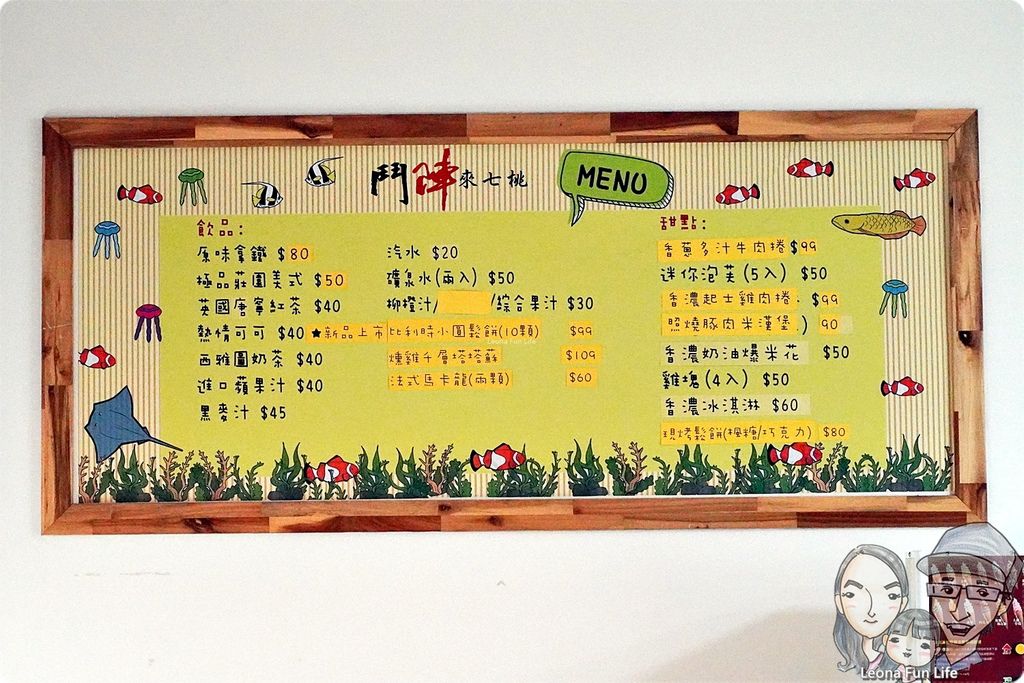 鬥陣來七桃 MENU
飲品:
原味拿鐵 $80
極品莊園美式 $50
英國唐寧紅茶 $40
熱情可可 $40
西雅圖奶茶 $40
進口蘋果汁 $40
黑麥汁 $45
汽水 $20
礦泉水(兩入) $50
柳橙汁/ /綜合果汁 $30
★新品上市 比利時小圓鬆餅(10顆) $99
燻雞千層塔塔酥 $109
法式馬卡龍(兩顆) $60
甜點:
香蔥多汁牛肉捲 $99
迷你泡芙(5入) $50
香濃起士雞肉捲. $99
照燒豚肉米漢堡.) 90
香濃奶油爆米花 $50
雞塊(4入) $50
香濃冰淇淋 $60
現烤鬆餅(楓糖/巧克力) $80
Leona Fun Life
Leona Fun Life